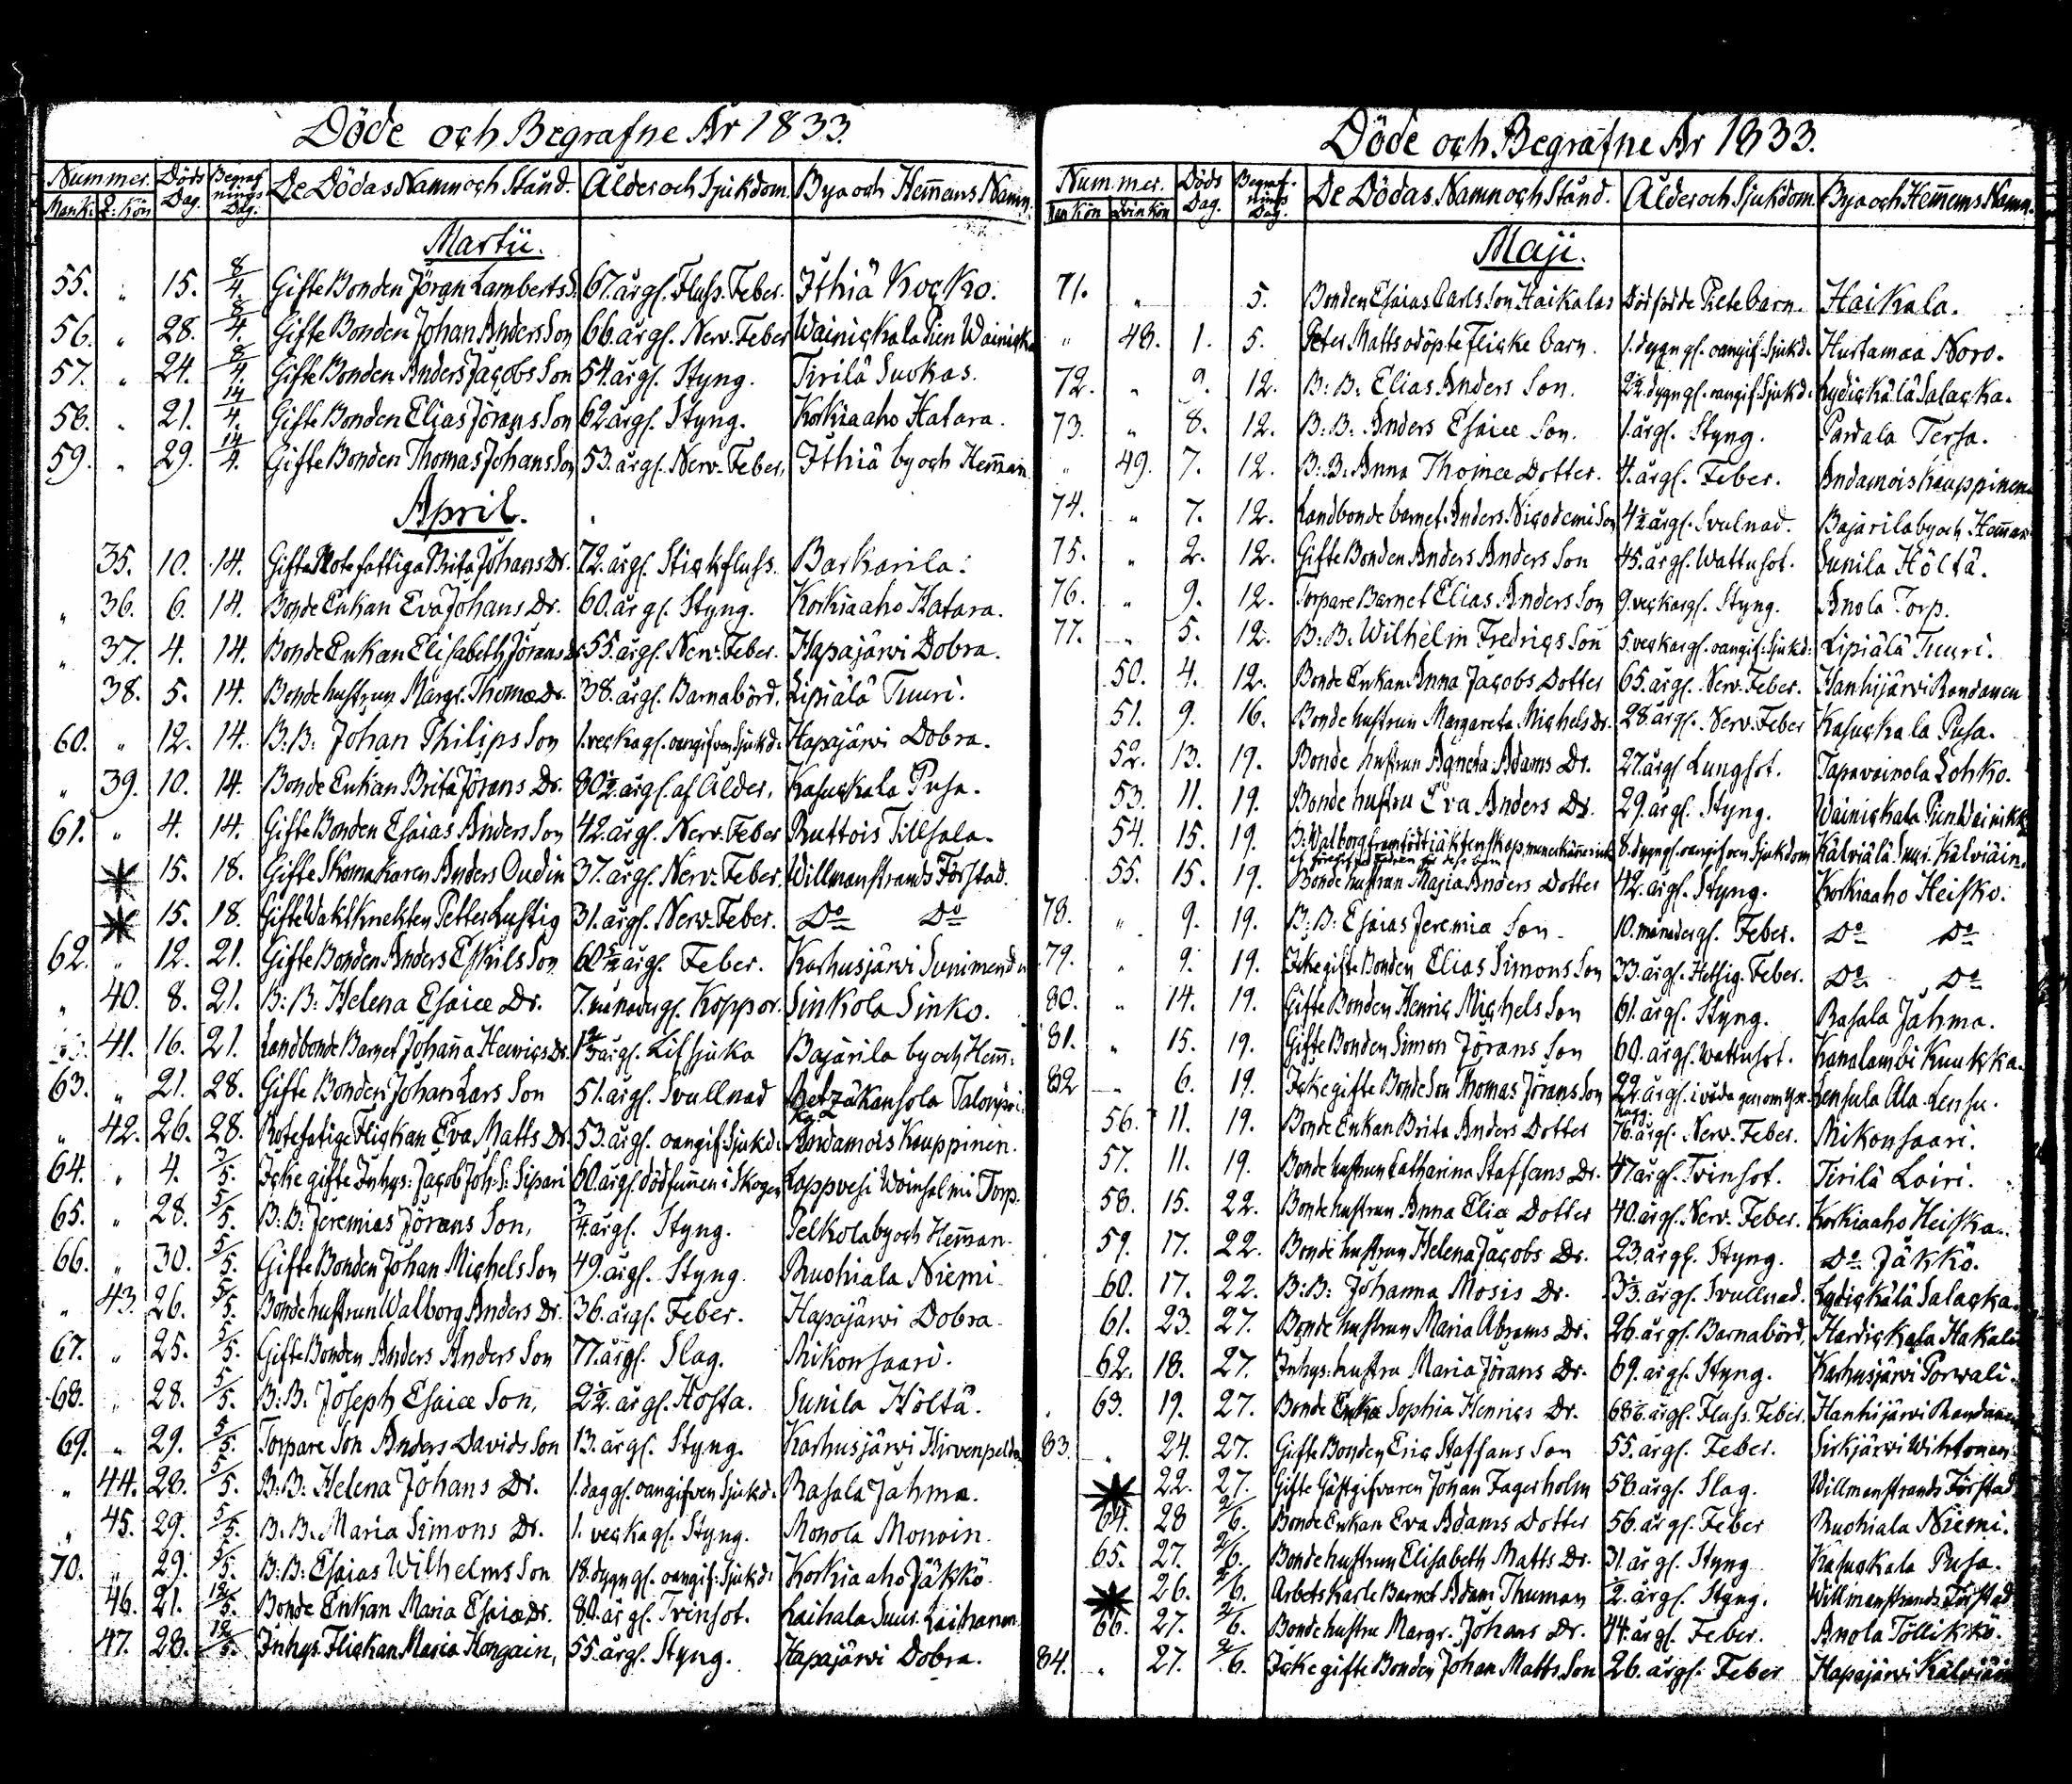 Döde och Begrafne År 1833.
Nummer. Döds Dag. Begrafnings Dag. De Dödas Namn och Stånd. Ålder och Sjukdom. Bya och Hem̄ans Namn.
Mank: Q: Kön
Martii.
55. " 15. 8/4. Gifte Bonden Jöran Lamberts S. 67. år gl. Fluss. Feber. Ithiä Kocko.
56. " 28. 8/4. Gifte Bonden Johan Anders Son 66. år gl. Nerv. Feber Wainickala Pien Wainicka
57. " 24. 8/4. Gifte Bonden Anders Jacobs Son 54. år gl. Styng. Tirilä Suokas.
58. " 21. 14/4. Gifte Bonden Elias Jörans Son 62 år gl. Styng. Korkiaaho Hatara.
59. " 29. 14/4. Gifte Bonden Thomas Johans Son 53. år gl. Nerv. Feber. Ithiä by och Hem̄an
April.
35. 10. 14. Gifta Rotefattiga Brita Johans Dr. 72. år gl. Stickfluss. Barkarila.
" 36. 6. 14. Bonde Enkan Eva Johans Dr. 60. år gl. Styng. Korkiaaho Hatara.
" 37. 4. 14. Bonde Enkan Elisabeth Jörans Dr 55. år gl. Nerv. Feber. Hapajärvi Dobra.
38. 5. 14. Bonde hustrun Margr. Thomæ Dr. 38. år gl. Barnabörd. Lipiälä Tuuri.
60. " 12. 14. B.B. Johan Philips Son 1. vecka gl. oangifven Sjukd: Hapajärvi Dobra.
" 39. 10. 14. Bonde Enkan Brita Jörans Dr. 80 1/2. år gl. af Ålder. Kasuckala Pusa.
61. " 4. 14. Gifte Bonden Esaias Anders Son 42. år gl. Nerv. Feber Ruttois Tillsala.
15. 18. Gifte Skomakaren Anders Oudin 37. år gl. Nerv. Feber. Willmanstrands Förstad.
15. 18. Gifte Waktknekten Petter Lustig 31. år gl. Nerv. Feber. Do Do
62. " 12. 21. Gifte Bonden Anders Eskils Son 60 år gl. Feber. Karhusjärvi
" 40. 8. 21. B: B: Helena Esaiæ Dr. 7. månader gl. Koppor. Sinkola Sinko.
41. 16. 21. Landbonde Barnet Johan̄a Henrics Dr. år gl. Lifsjuka Bajärila by och Hem̄:
63. " 21. 28. Gifte Bonden Johan Lars Son 51. år gl. Svullnad
" 42. 26. 28. Rotefatige Flickan Eva Matts Dr. 53. år gl. oangif: Sjukd: Andamois Kauppinen.
64. " 4. 3/5. Icke gifte Inhys: Jacob Joh: S: Sipari 60. år gl. dödfun̄en i Skogen Lappvesi Woinsalmi Torp.
65. " 28. 5/5. B: B: Jeremias Jörans Son, 3/4. år gl. Styng. Pelkola by och Hem̄an.
66. " 30. 5/5. Gifte Bonden Johan Michels Son 49. år gl. Styng. Ruohiala Niemi.
" 43. 26. 5/5. Bonde hustrun Walborg Anders Dr. 36. år gl. Feber. Hapajärvi Dobra.
67. " 25. 5/5. Gifte Bonden Anders Anders Son 77. år gl. Slag. Mikonsaari.
68. " 28. 5/5. B: B. Joseph Esaiæ Son, 2 1/2. år gl. Hosta. Sunila Höltä.
69. " 29. 5/5. Torpare Son Anders Davids Son 13. år gl. Styng. Karhusjärvi Hirvenpelda
" 44. 28. 5/5. B: B: Helena Johans Dr. 1. dag gl. oangifven Sjukd. Rasala Jahma.
" 45. 29. 5/5. B: B: Maria Simons Dr. 1. vecka gl. Styng. Monola Monoin.
70. " 29. 5/5. B: B: Esaias Wilhelms Son 18. dygn gl. oangif: Sjukd: Korkiaaho Jäkkö.
46. 21. 12/5. Bonde Enkan Maria Esaiæ Dr. 80. år gl. Tvinsot. Laihala Suur. Laihanen.
47. 28. 12/5. Inhys. Flickan Maria Hongain, 55. år gl. Styng. Hapajärvi Dobra.
Döde och Begrafne År 1833.
Nummer. Döds Dag. Begrafnings Dag. De Dödas Namn och Stånd. Ålder och Sjukdom. Bya och Hem̄ans Namn.
Man Kön Qvin Kön
Maji.
71. " 5. Bonden Esaias Carls Son Haikalas Dödfödde Piltebarn. Haikala.
" 48. 1. 5. Peter Matts odöpte Flicke barn. 1. dygn gl. oangif: Sjukd. Hurtamaa Noro.
72. " 9. 12. B: B: Elias Anders Son. 2 1/2. dygn gl. oangif. Sjukd. Lydickälä Salacka.
73. " 8. 12. B: B: Anders Esaiæ Son. 1. år gl. Styng. Partala Tersa.
" 49. 7. 12. B: B: Anna Thomæ Dotter. 4. år gl. Feber. Andamois Kauppinen.
74. " 7. 12. Landbonde barnet Anders Nicodemi Son 4 1/2 år gl. Svulnad. Bajärila by och Hem̄an
75. " 2. 12. Gifte Bonden Anders Anders Son 45. år gl. Wattusot. Sunila Höltä.
76. " 9. 12. Torpare Barnet Elias Anders Son 9. veckor gl. Styng. Anola Torp.
77. " 5. 12. B: B: Wilhelm Fredrics Son 5. veckor gl. oangif: Sjukd: Lipiälä Tuuri.
50. 4. 12. Bonde Enkan Anna Jacobs Dotter 65. år gl. Nerv. Feber. Hanhijärvi Rondanen
51. 9. 16. Bonde hustrun Margareta Michels Dr. 28. år gl. Nerv. Feber Kasuckala Pusa.
52. 13. 19. Bonde hustrun Agneta Adams Dr. 27. år gl Lungsot. Tapavainola Lohko.
53. 11. 19. Bonde hustru Eva Anders Dr. 29. år gl. Styng. Wainickala Pien Wainikka
54. 15. 19. B: Walborg framfödt i äktenskap, 8. dygn gl. oangifven Sjukdom Kälviälä Suur. Kälviäin.
55. 15. 19. Bonde hustrun Maria Anders Dotter 42. år gl. Styng. Korkiaaho Heisko.
78. " 9. 19. B: B: Esaias Jeremiæ Son. 10. månader gl. Feber. Do Do
79. " 9. 19. Icke gifte Bonden Elias Simons Son 33. år gl. Hetsig. Feber. Do Do
80. " 14. 19. Gifte Bonden Henric Michels Son 61. år gl. Styng. Rasala Jahma.
81. " 15. 19. Gifte Bonden Simon Jörans Son 60. år gl. Wattusot. Kanalambi Kuukka.
82 " 6. 19. Icke gifte Bonde Son Thomas Jörans Son 22. år gl. i våda genom yx-hugg. Lensula Ala Lensu.
56. 11. 19. Bonde Enkan Brita Anders Dotter 76. år gl. Nerv. Feber. Mikonsaari.
57. 11. 19. Bonde hustrun Catharina Staffans Dr. 47. år gl. Tvinsot. Tirilä Loiri.
58. 15. 22. Bonde hustrun Anna Eliæ Dotter 40. år gl. Nerv. Feber. Korkiaaho Heiska.
59. 17. 22. Bonde hustrun Helena Jacobs Dr. 23. år gl. Styng. Do Jäkkö.
60. 17. 22. B: B: Johanna Mosis Dr. 3 1/2. år gl. Svullnad. Lydickälä Salacka.
61. 23. 27. Bonde hustrun Maria Abrams Dr. 26. år gl. Barnabörd. Hardickala Hakala
62. 18. 27. Inhys. hustru Maria Jörans Dr. 69. år gl. Styng. Karhusjärvi Porvali.
63. 19. 27. Bonde Enka Sophia Henrics Dr. 68 1/6. år gl. Fluss. Feber. Hanhijärvi Randanen
83. " 24. 27. Gifte Bonden Eric Staffans Son 55. år gl. Feber. Sirkjärvi Wihtonen
22. 27. Gifte Gästgifvaren Johan Fagerholm 56. år gl. Slag. Willmanstrands Förstad
64. 28 2/6. Bonde Enkan Eva Adams Dotter 56. år gl. Feber Ruohiala Niemi.
65. 27. 2/6. Bonde hustrun Elisabeth Matts Dr. 31. år gl. Styng Kasuckala Pusa.
26. 2/6. Arbets Karls Barnet Adam Thuman 1/2. år gl. Styng. Willmanstrands Förstad
66. 27. 2/6. Bonde hustru Margr. Johans Dr. 44. år gl. Feber. Anola Töllikkö.
84. " 27. 2/6. Icke gifte Bonden Johan Matts Son 26. år gl. Feber Hapajärvi Kälviäin